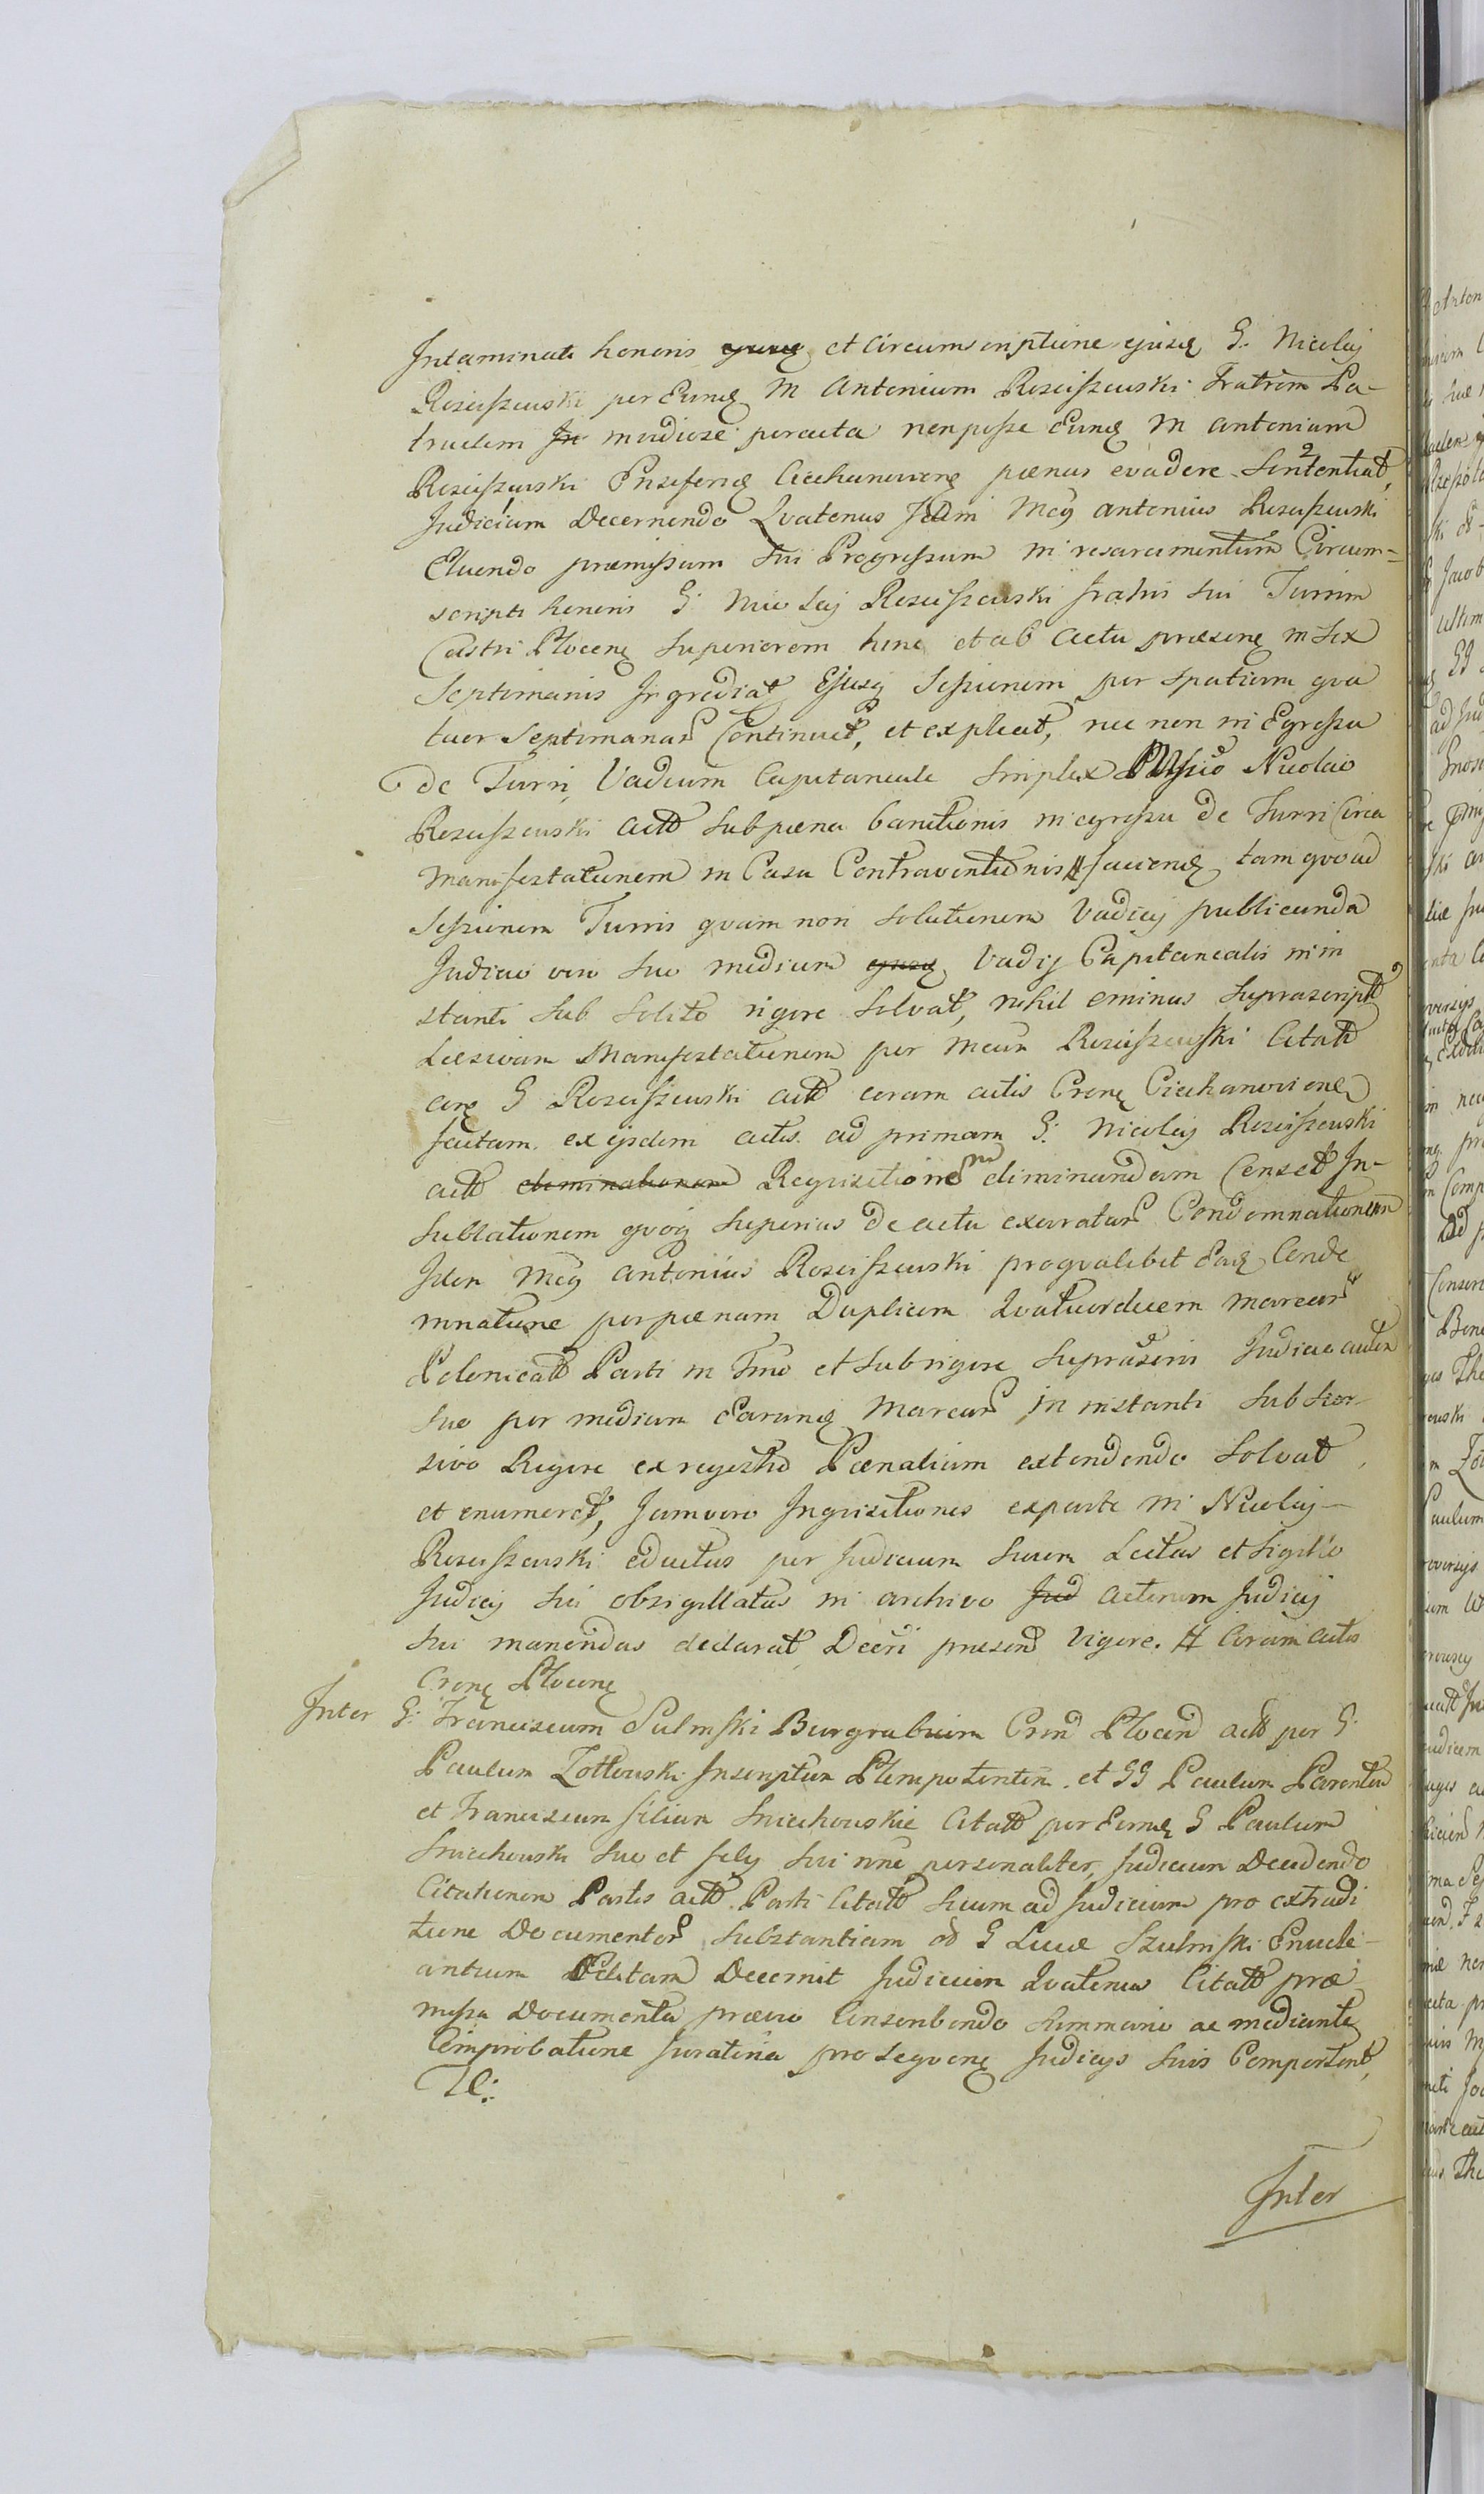 Intaminati honoris et Circumscriptione ejusq G. Nicolaj
Rosciszewski per Eundq M Antonium Rosciszewski Fratrem Pa-
truelem modiose peracta non posse Eundq M antonium
Rosciszewski Ensiferuq Ciechanovienq pœnas evadere Sententiat,
Judicium Decernendo Qvatenus Idem Mcus antonius Rosciszewski
Eluendo præmissum sui Progressum in resarcimentum Circum-
scripti honoris G. Nicolaj Rosciszewski fratris sui Turrim
Castri Plocenq Superiorem hinc et ab actu præsenq in Sex
Septimanis Ingrediat, Ejusq Sessionem per spatium qva
tuor Septimanar Continuet, et expleat, nec non in Egressu
de Turri, Vadium Capitaneale Simplex Nicolao
Rosciszewski actt sub pœna banitionis in egressu de Turri Circa
Manifestationem in Casu Contraventionis # faciendq tam qvoad
Sessionem Turris qvam non Solutionem Vadij publicanda
Judicio vero suo medium Vadij Capitanealis in in
stanti sub Solito rigore Solvat, nihil eminus Suprascriptt
Læsivam Manifestationem per Mcum Rosciszewski Citatt
G Rosciszewski actt coram actis Crenq Ciechanovienq
factam ex ijsdem actis ad primam G. Nicolaj Rosciszewski
actt Reqvisitionem eliminandam Censet In-
Sublationem qvoq Superius de actu exaratar Condemnationem
Idem Mcus antonius Rosciszewski pro qvalibet Eaq Conde
mnatione per pœnam Duplicem Qvatuordecem Marcar
Polonicatt Parti in Fmo et sub rigore Suprascri Judicio autem
suo per medium Earundq Marcar in instanti sub
sivo Rigore ex regestro Pœnalium extendendo Solvat
et enumeret, Jam vero Inqvisitiones ex parte M Nicolaj
Rosciszewski eductas per Judicium suum Lectas et Sigillo
Judicij sui obsigillatas in archivo Actorum Judicij
sui manendas declarat, Decri præsend vigore. # Coram actis
Crenq Plocenq
Inter G. Franciscum Sulmski Burgrabium Crend Plocend actt per G.
Paulum Zottowski Inscriptum Plenipotentem et GG Paulum Parentem
et Franciscum filium Smiechowskie Citatt per Eundq G Paulum
Smiechowski suo et filij sui nne personaliter, Judicium Decidendo
Citationem Partis actt Parti Citatt suum ad Judicium pro extradi
tione Documentor Substantiam ad G Lucæ Szulmski Enucle-
antium Editam Decernit Judicium Qvatenus Citatt præ
missa Documenta prævio Conscribendo Summario ac mediante
Comprobatione Juratoria pro Seqvenq Judicijs suis Comportent,
Inter